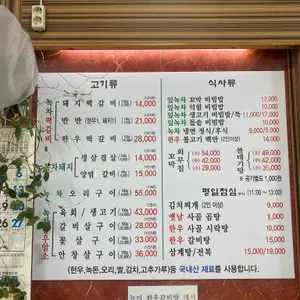 고기류
녹차떡갈비
돼지떡갈비 14,000
반반 (한우1, 돼지1) 21,000
한우떡갈비 28,000
녹차돼지
생삼겹살 14,000
양념갈비 15,000
녹차오리구이 55,000
육회/생고기 43,000
꽃살구이 33,000
안창살구이 36,000
식사류
잎녹차 꼬막 비빔밥 12,000
잎녹차 익힘 비빔밥 10,000
잎녹차 생고기 비빔밥/특 11,000/17,000
잎녹차 돌솥 비빔밥 12,000
녹차 냉면 정식/후식 9,000/5,000
한우 불고기 백반 (2인 이상) 14,000/22,000
꼬막 회무침
(大) 54,000
(中) 42,000
(小) 29,000
(大) 49,000
(中) 42,000
(小) 35,000
※ 공기별도 1,000원
평일점심 (11:00 ~ 13:00)
김치찌개 (2인 이상) 9,000
옛날 사골 곰탕 9,000
한우 사골 시락탕 10,000
한우 갈비탕 15,000
삼계탕/전복 15,000/19,000
(한우,녹돈,오리,쌀,김치,고추가루) 등 국내산 재료를 사용합니다.
한우갈비탕 개시